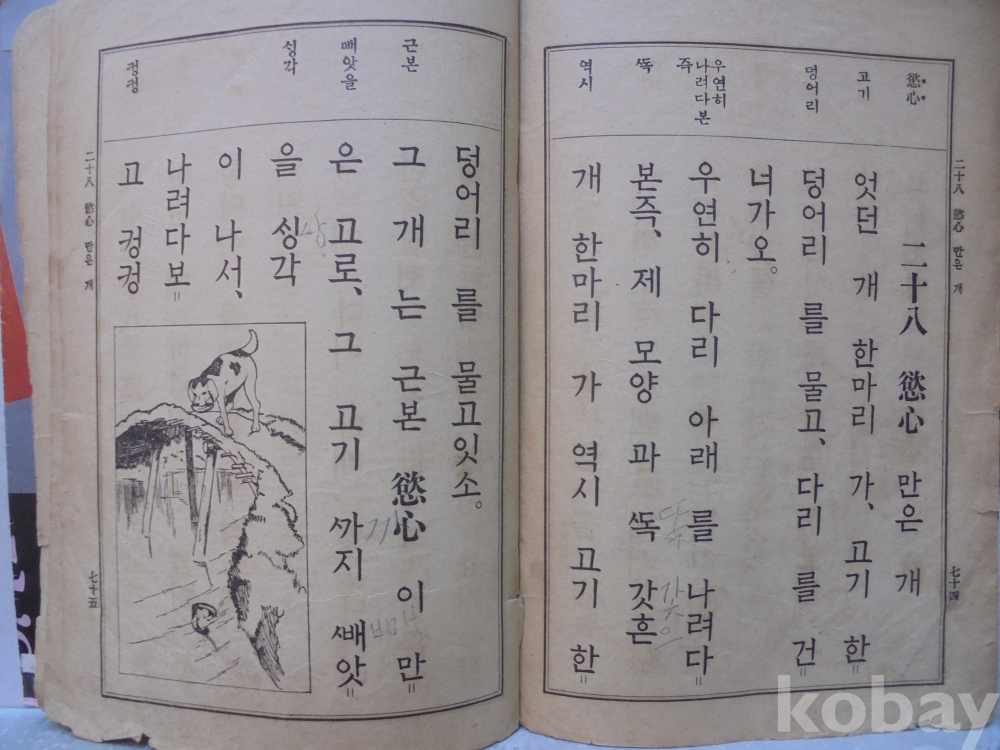 二十八 慾心 만은 개
七十四
慾心
고기
덩어리
우연히
나려다본
즉
ᄯᅩᆨ
역시
二十八 慾心 만은 개
엇던 개 한마리 가, 고기 한=
덩어리 를 물고, 다리 를 건=
너가오。
우연히 다리 아래 를 나려다=
본즉, 제 모양 과 ᄯᅩᆨ 갓흔
개 한마리 가 역시 고기 한=
근본
ᄲᅢ앗을
싱각
컹컹
덩어리 를 물고잇소。
그 개 는 근본 慾心 이 만=
은 고로, 그 고기 ᄭᅡ지 ᄲᅢ앗=
을 싱각
이 나서,
나려다보=
고 컹컹
二十八 慾心 만은 개
七十五
kobay